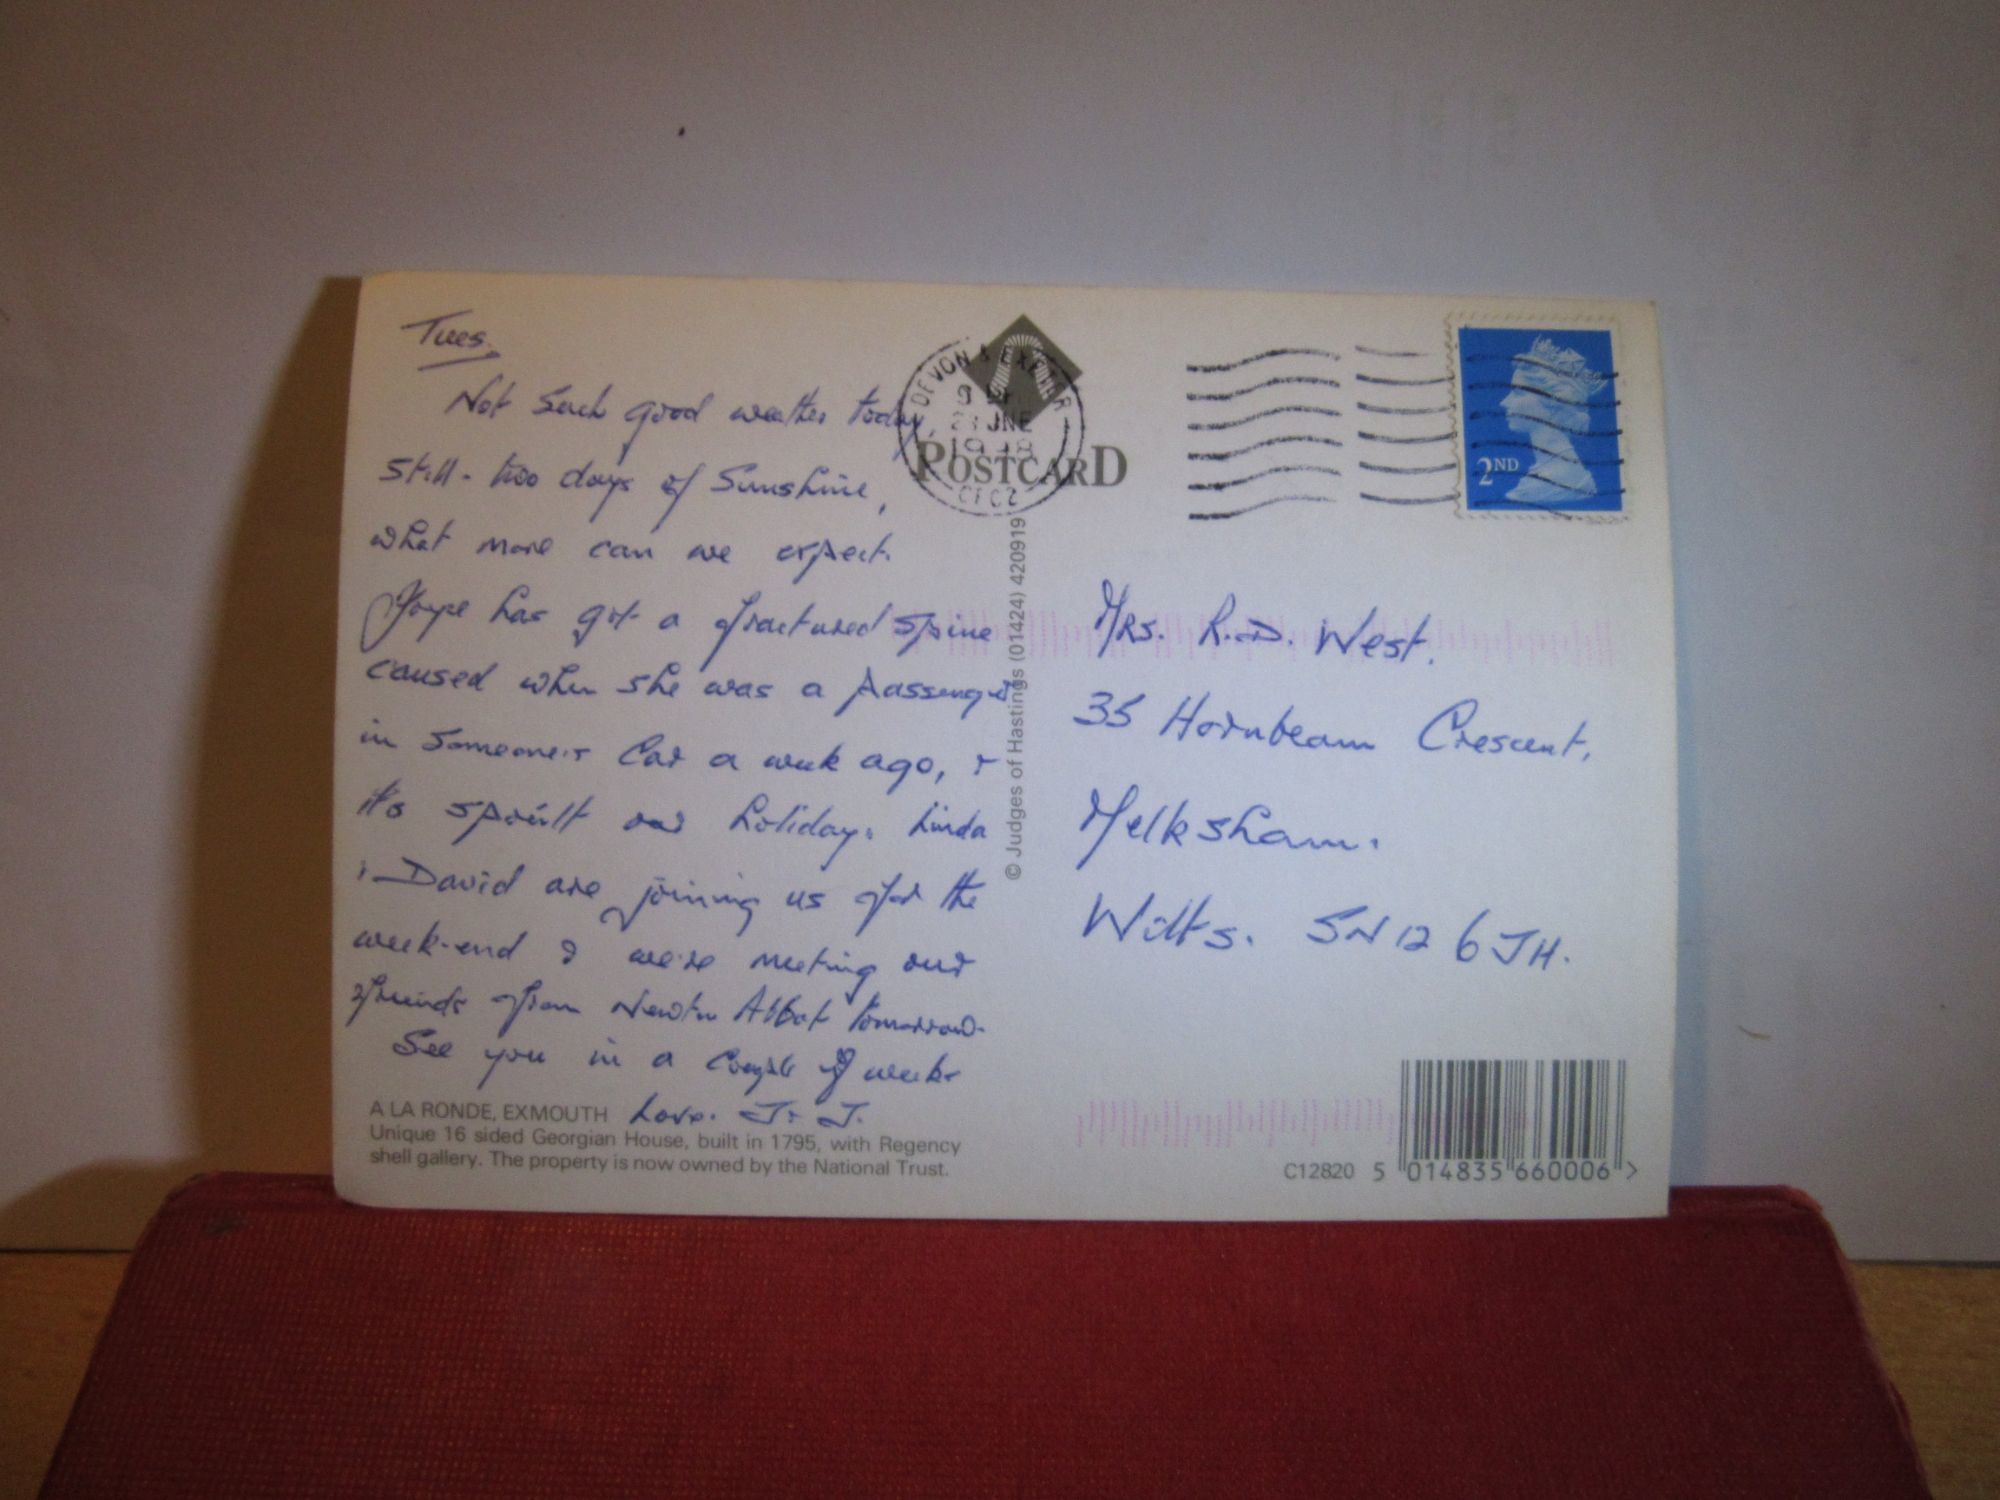 Tues.
Not such good weather today,
still - two days of Sunshine,
what more can we expect.
Joyce has got a fractured spine
caused when she was a passenger
in someone's car a week ago, +
it's spoilt our holiday. Linda
+ David are joining us for the
week-end & we're meeting our
friends from Newton Abbot tomorrow.
See you in a couple of weeks
Love. J. J.
A LA RONDE, EXMOUTH
Unique 16 sided Georgian House, built in 1795, with Regency
shell gallery. The property is now owned by the National Trust.
DEVON & EXETER
JNE
POSTCARD
© Judges of Hastings (01424) 420919
2ND
Mrs. R.D. West.
35 Hornbeam Crescent,
Melksham.
Wilts. SN12 6JH.
C12820 5 014835 660006 >